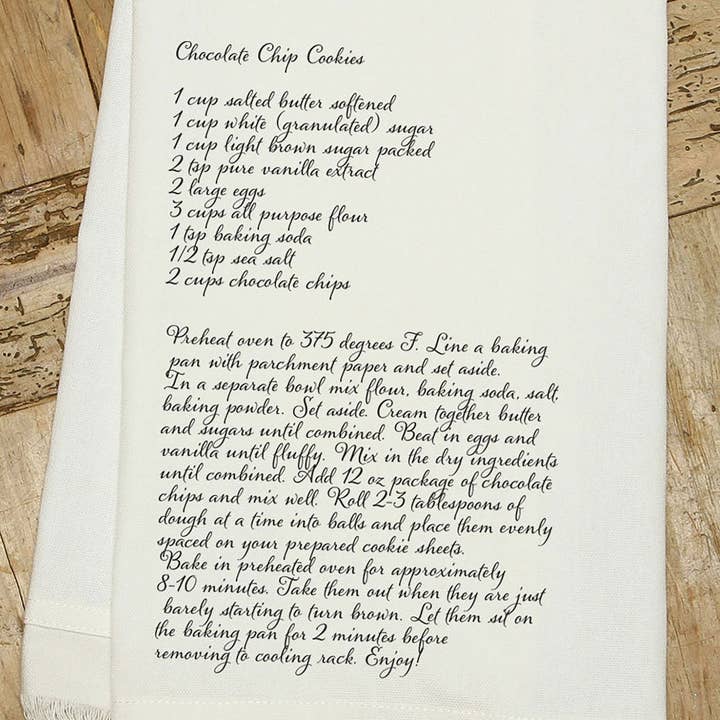 Chocolate Chip Cookies
1 cup salted butter softened
1 cup white (granulated) sugar
1 cup light brown sugar packed
2 tsp pure vanilla extract
2 large eggs
3 cups all purpose flour
1 tsp baking soda
1/2 tsp sea salt
2 cups chocolate chips
Preheat oven to 375 degrees F. Line a baking
pan with parchment paper and set aside.
In a separate bowl mix flour, baking soda, salt,
baking powder. Set aside. Cream together butter
and sugars until combined. Beat in eggs and
vanilla until fluffy. Mix in the dry ingredients
until combined. Add 12 oz package of chocolate
chips and mix well. Roll 2-3 tablespoons of
dough at a time into balls and place them evenly
spaced on your prepared cookie sheets.
Bake in preheated oven for approximately
8-10 minutes. Take them out when they are just
barely starting to turn brown. Let them sit on
the baking pan for 2 minutes before
removing to cooling rack. Enjoy!